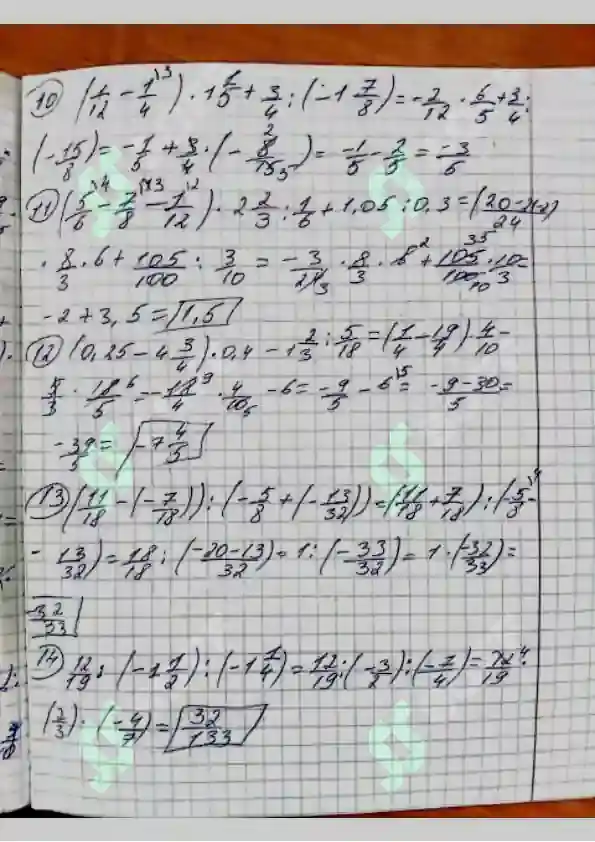 10) (1/12 - 1/4^\3) · 1 1/5 + 3/4 : (-1 7/8) = -2/12 · 6/5 + 3/4 :
(-15/8) = -1/5 + 3/4 · (-8^2/15_5) = -1/5 - 2/5 = -3/5
11) (5/6^\4 - 7/8^\3 - 1/12^\2) · 2 2/3 : 1/6 + 1,05 : 0,3 = (20-21-2)/24
· 8/3 · 6 + 105/100 : 3/10 = -3/24_3 · 8/3 · 6^2 + 105^35/100_10 · 10/3 =
-2 + 3,5 = 1,5
12) (0,25 - 4 3/4) · 0,4 - 1 2/3 : 5/18 = (1/4 - 19/4) · 4/10 -
5/3 · 18^6/5 = -18^9/4 · 4/10_5 - 6 = -9/5 - 6^\5 = -9-30/5 =
-39/5 = -7 4/5
13) (11/18 - (-7/18)) : (-5/8 + (-13/32)) = (11/18 + 7/18) : (-5/8^\4 -
- 13/32) = 18/18 : (-20-13/32) = 1 : (-33/32) = 1 · (-32/33) =
-32/33
14) 12/19 : (-1 1/2) : (-1 3/4) = 12/19 : (-3/2) : (-7/4) = 12^4/19 ·
(2/3) · (-4/7) = 32/133